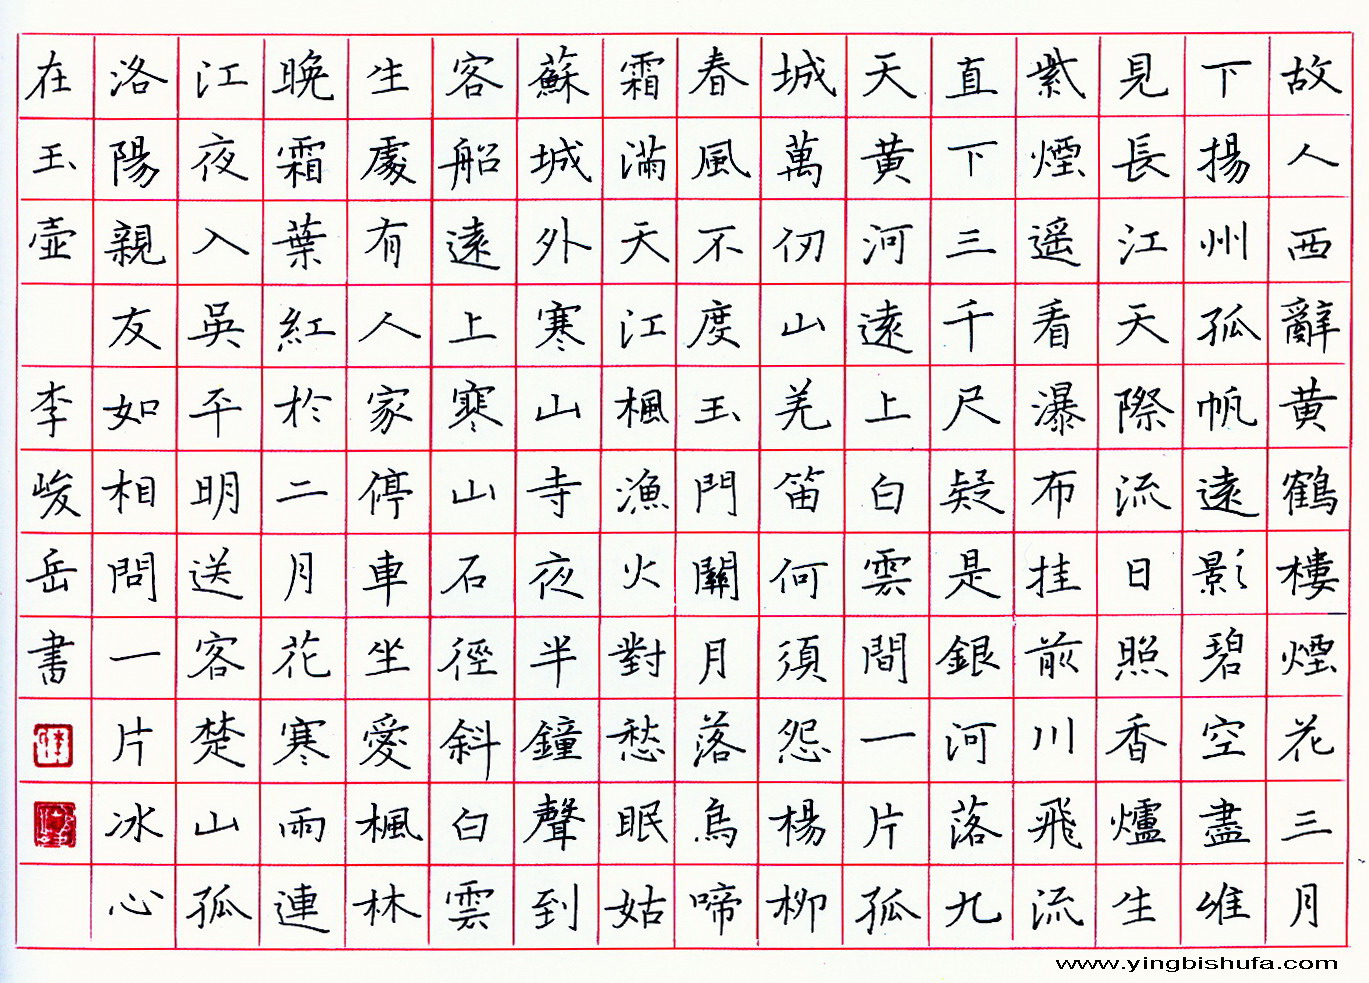 故人西辭黄鶴樓煙花三月
下揚州孤帆遠影碧空盡唯
見長江天際流日照香爐生
紫煙遥看瀑布挂前川飛流
直下三千尺疑是銀河落九
天黄河遠上白雲間一片孤
城萬仞山羌笛何須怨楊柳
春風不度玉門關月落烏啼
霜滿天江楓漁火對愁眠姑
蘇城外寒山寺夜半鐘聲到
客船遠上寒山石徑斜白雲
生處有人家停車坐愛楓林
晚霜葉紅於二月花寒雨連
江夜入吳平明送客楚山孤
洛陽親友如相問一片冰心
在玉壺 李峻岳書
www.yingbishufa.com